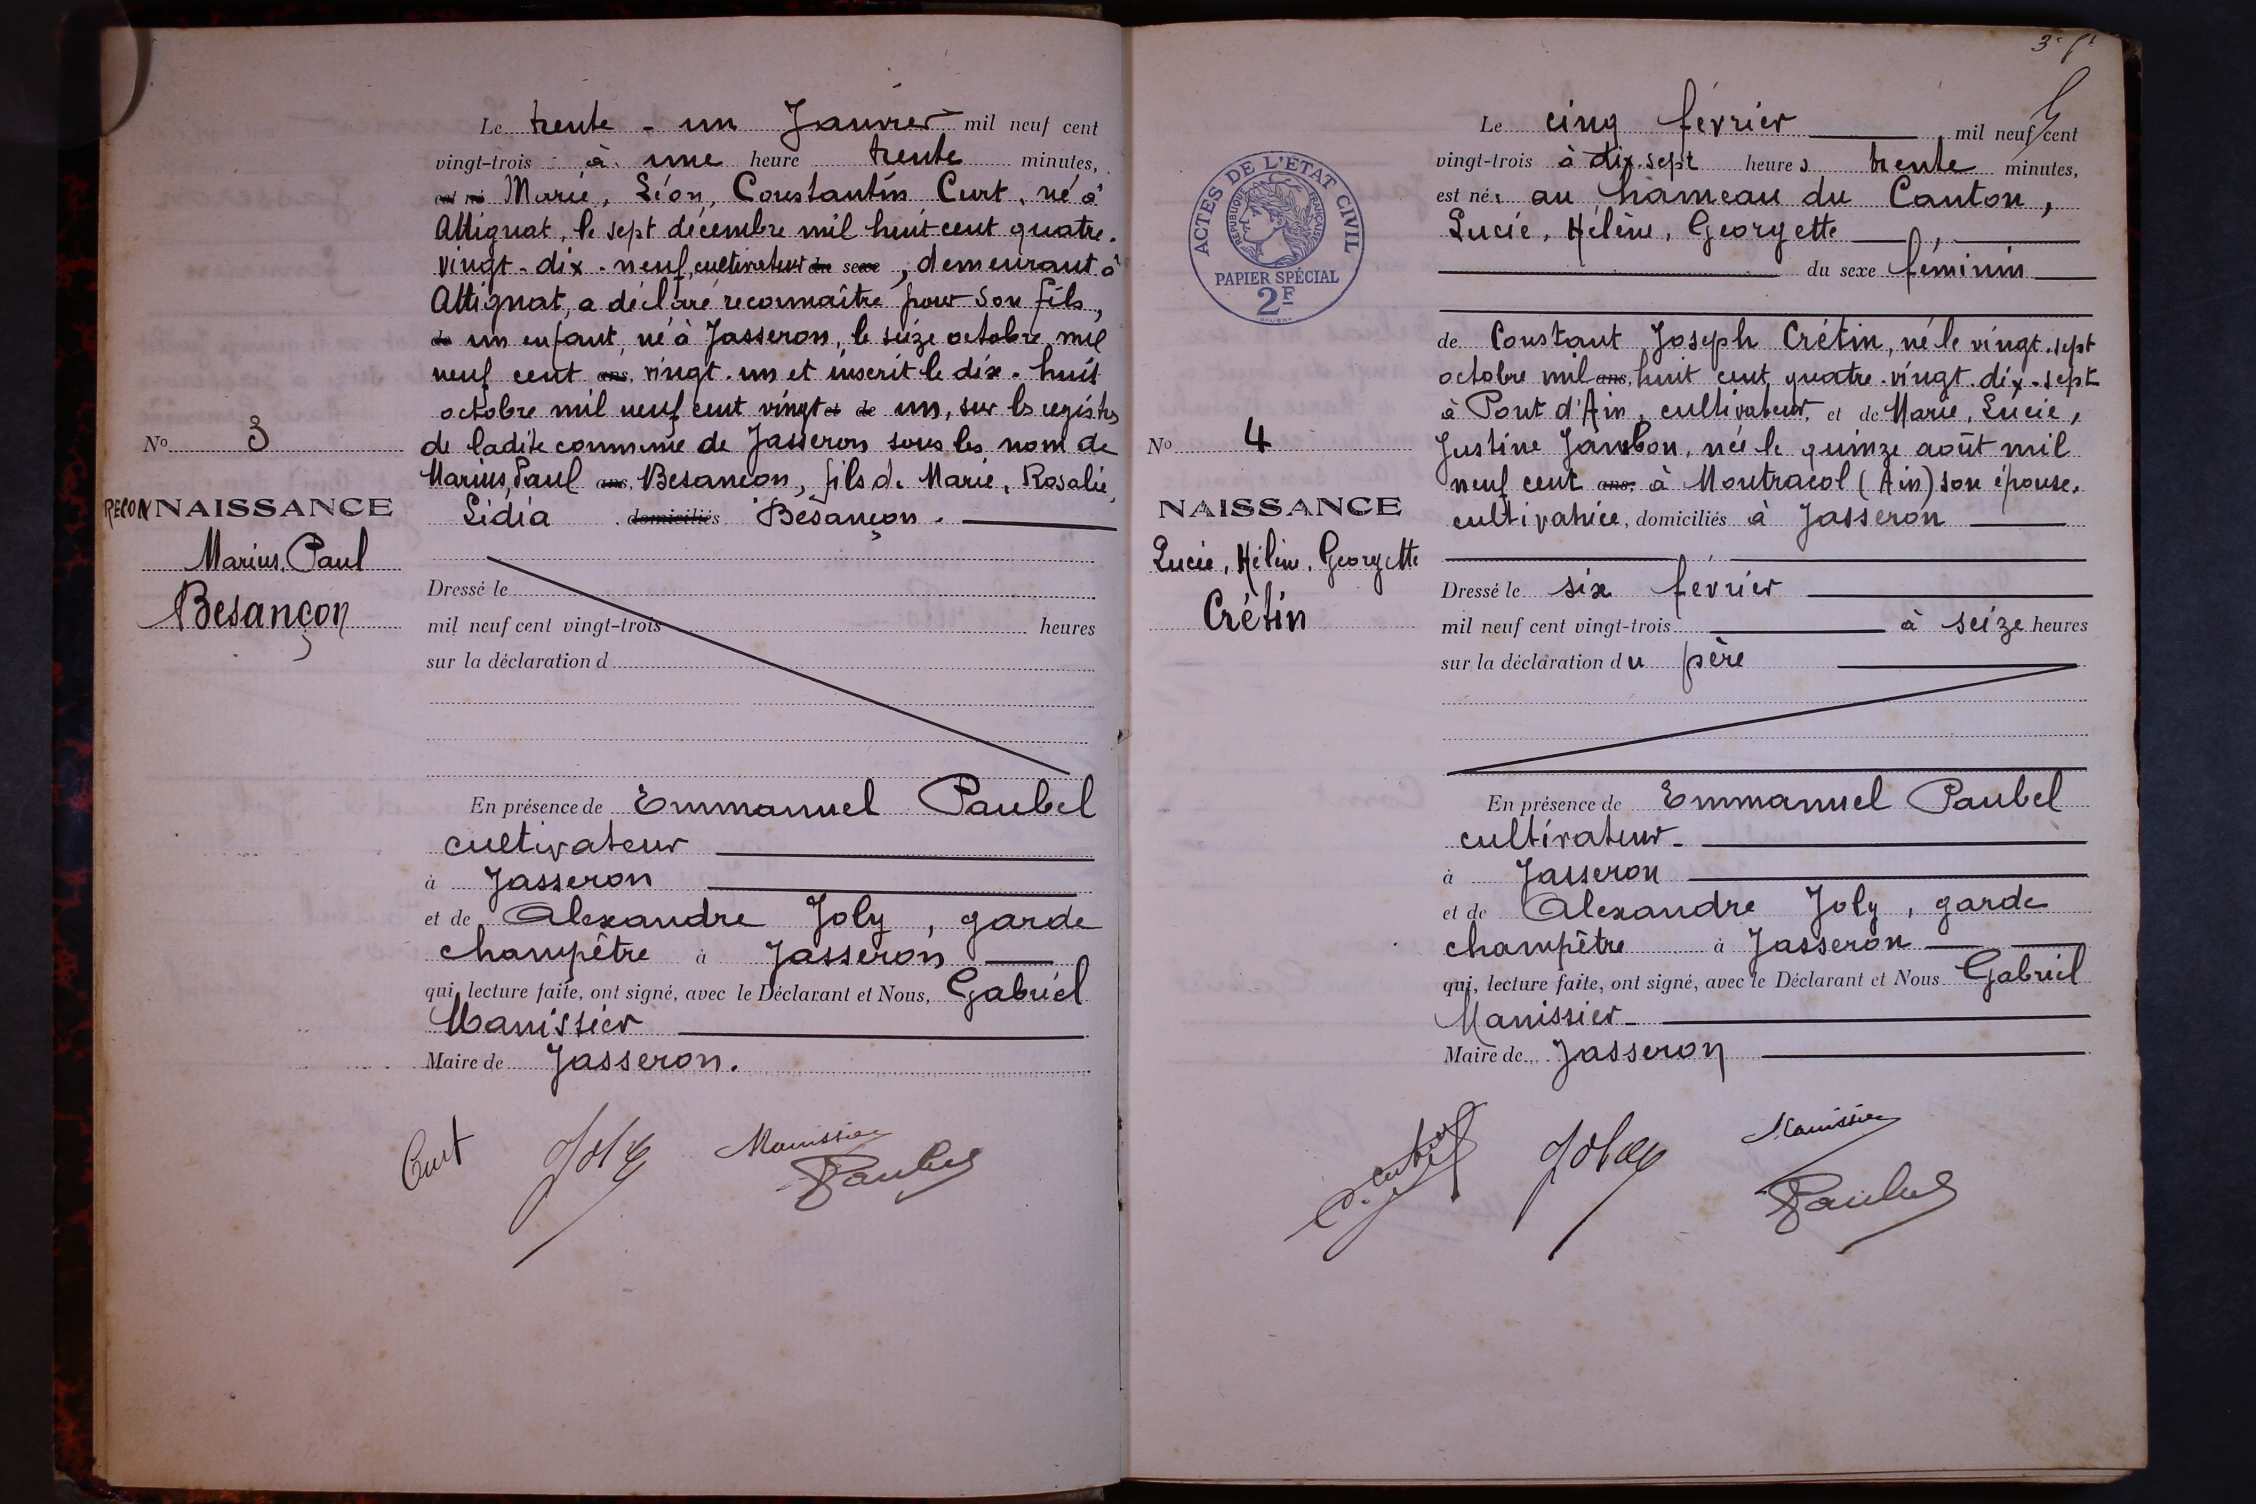 Le trente - un Janvier mil neuf cent
vingt-trois à une heure trente minutes,
est né Marie, Léon, Constantin Curt, né à
Attignat, le sept décembre mil huit cent quatre-
vingt-dix-neuf, cultivateur du sexe, demeurant à
Attignat, a déclaré reconnaître pour son fils,
de un enfant, né à Jasseron, le seize octobre mil
neuf cent ans, vingt-un et inscrit le dix-huit
octobre mil neuf cent vingt et de un, sur les registres
de ladite commune de Jasseron sous les nom de
Marius, Paul ans, Besançon, fils de Marie, Rosalie,
Lidia domiciliés Besançon.
No 3
RECONNAISSANCE
Marius, Paul
Besançon
Dressé le
mil neuf cent vingt-trois heures
sur la déclaration d
En présence de Emmanuel Paubel
cultivateur
à Jasseron
et de Alexandre Joly, garde
champêtre à Jasseron
qui, lecture faite, ont signé, avec le Déclarant et Nous, Gabriel
Manissier
Maire de Jasseron.
Curt Joly Manissier
Paubel
ACTES DE L'ETAT CIVIL
REPUBLIQUE FRANÇAISE
PAPIER SPÉCIAL
2F
Le cinq février mil neuf cent
vingt-trois à dix-sept heures trente minutes,
est née au hameau du Canton,
Lucie, Hélène, Georgette,
du sexe féminin
de Constant Joseph Crétin, né le vingt-sept
octobre mil ans, huit cent quatre-vingt-dix-sept
à Pont d'Ain, cultivateur, et de Marie, Lucie,
Justine Jambon, née le quinze août mil
neuf cent ans, à Montracol (Ain) son épouse,
cultivatrice, domiciliés à Jasseron
No 4
NAISSANCE
Lucie, Hélène, Georgette
Crétin
Dressé le six février
mil neuf cent vingt-trois à seize heures
sur la déclaration du père
En présence de Emmanuel Paubel
cultivateur
à Jasseron
et de Alexandre Joly, garde
champêtre à Jasseron
qui, lecture faite, ont signé, avec le Déclarant et Nous Gabriel
Manissier
Maire de Jasseron
Joly Manissier
Paubel